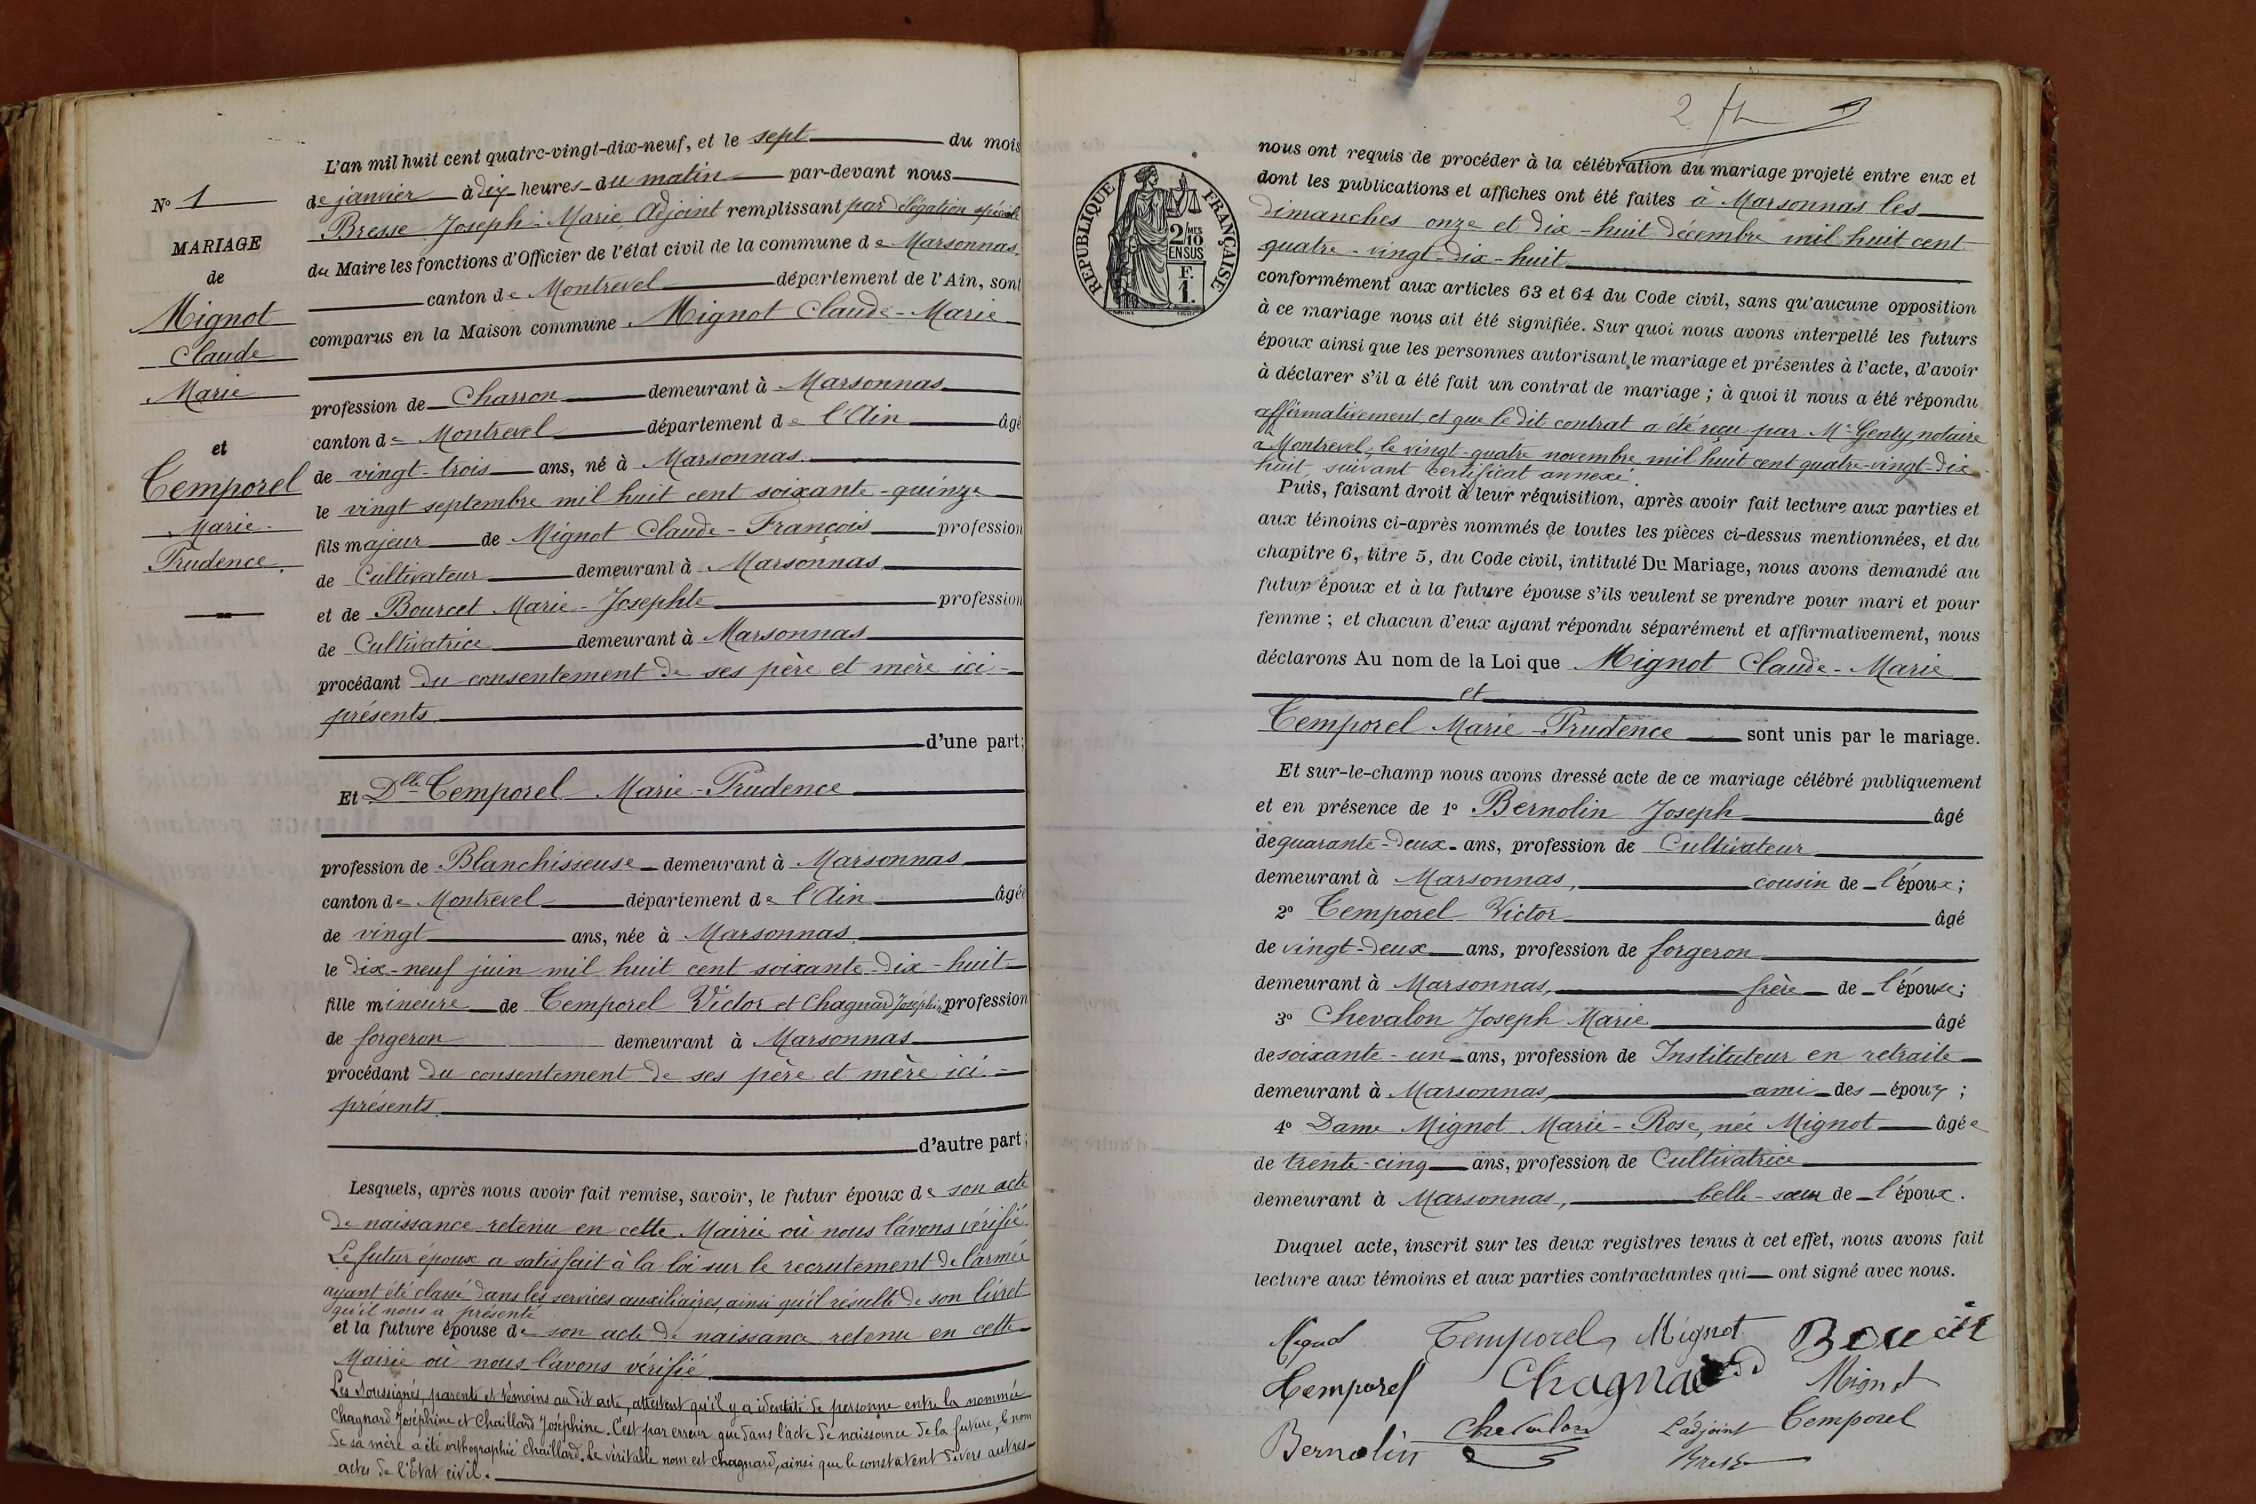 N° 1
MARIAGE
de
Mignot
Claude
Marie
et
Temporel
Marie-
Prudence.
L'an mil huit cent quatre-vingt-dix-neuf, et le sept du mois
de janvier à dix heures du matin par-devant nous
Bresse Joseph-Marie, Adjoint remplissant par délégation spéciale
du Maire les fonctions d'Officier de l'état civil de la commune de Marsonnas,
canton de Montrevel département de l'Ain, sont
comparus en la Maison commune Mignot Claude-Marie
profession de Charron demeurant à Marsonnas
canton de Montrevel département de l'Ain âgé
de vingt-trois ans, né à Marsonnas
le vingt septembre mil huit cent soixante-quinze
fils majeur de Mignot Claude-François profession
de Cultivateur demeurant à Marsonnas
et de Bourcet Marie-Josephte profession
de Cultivatrice demeurant à Marsonnas
procédant du consentement de ses père et mère ici-
présents
d'une part;
Et Dlle Temporel Marie-Prudence
profession de Blanchisseuse demeurant à Marsonnas
canton de Montrevel département de l'Ain âgée
de vingt ans, née à Marsonnas
le dix-neuf juin mil huit cent soixante-dix-huit
fille mineure de Temporel Victor et Chagnard Joséphine profession
de forgeron demeurant à Marsonnas
procédant du consentement de ses père et mère ici-
présents
d'autre part;
Lesquels, après nous avoir fait remise, savoir, le futur époux de son acte
de naissance retenu en cette Mairie où nous l'avons vérifié.
Le futur époux a satisfait à la loi sur le recrutement de l'armée
ayant été classé dans les services auxiliaires, ainsi qu'il résulte de son livret
qu'il nous a présenté
et la future épouse de son acte de naissance retenu en cette
Mairie où nous l'avons vérifié
Les soussignés, parents et témoins au dit acte, attestent qu'il y a identité de personne entre la nommée
Chagnard Joséphine et Chaillard Joséphine. C'est par erreur que dans l'acte de naissance de la future, le nom
de sa mère a été orthographié Chaillard. Le véritable nom est Chagnard, ainsi que le constatent divers autres
actes de l'Etat civil.
2
REPUBLIQUE FRANÇAISE
2 MES
10
EN SUS
F.
1.
nous ont requis de procéder à la célébration du mariage projeté entre eux et
dont les publications et affiches ont été faites à Marsonnas les
dimanches onze et dix-huit décembre mil huit cent
quatre-vingt-dix-huit
conformément aux articles 63 et 64 du Code civil, sans qu'aucune opposition
à ce mariage nous ait été signifiée. Sur quoi nous avons interpellé les futurs
époux ainsi que les personnes autorisant le mariage et présentes à l'acte, d'avoir
à déclarer s'il a été fait un contrat de mariage ; à quoi il nous a été répondu
affirmativement, et que le dit contrat a été reçu par Me Genty, notaire
à Montrevel, le vingt-quatre novembre mil huit cent quatre-vingt-dix-
huit, suivant certificat annexé.
Puis, faisant droit à leur réquisition, après avoir fait lecture aux parties et
aux témoins ci-après nommés de toutes les pièces ci-dessus mentionnées, et du
chapitre 6, titre 5, du Code civil, intitulé Du Mariage, nous avons demandé au
futur époux et à la future épouse s'ils veulent se prendre pour mari et pour
femme ; et chacun d'eux ayant répondu séparément et affirmativement, nous
déclarons Au nom de la Loi que Mignot Claude-Marie
et
Temporel Marie-Prudence sont unis par le mariage.
Et sur-le-champ nous avons dressé acte de ce mariage célébré publiquement
et en présence de 1° Bernolin Joseph âgé
de quarante-deux ans, profession de Cultivateur
demeurant à Marsonnas, cousin de l'époux;
2° Temporel Victor âgé
de vingt-deux ans, profession de forgeron
demeurant à Marsonnas, frère de l'épouse;
3° Chevalon Joseph Marie âgé
de soixante-un ans, profession de Instituteur en retraite
demeurant à Marsonnas, ami des époux ;
4° Dame Mignot Marie-Rose, née Mignot âgée
de trente-cinq ans, profession de Cultivatrice
demeurant à Marsonnas, belle-sœur de l'époux.
Duquel acte, inscrit sur les deux registres tenus à cet effet, nous avons fait
lecture aux témoins et aux parties contractantes qui ont signé avec nous.
Mignot Temporel Mignot
Temporel Chagnard Mignot
Bernolin Chevalon L'adjoint Temporel
Bresse